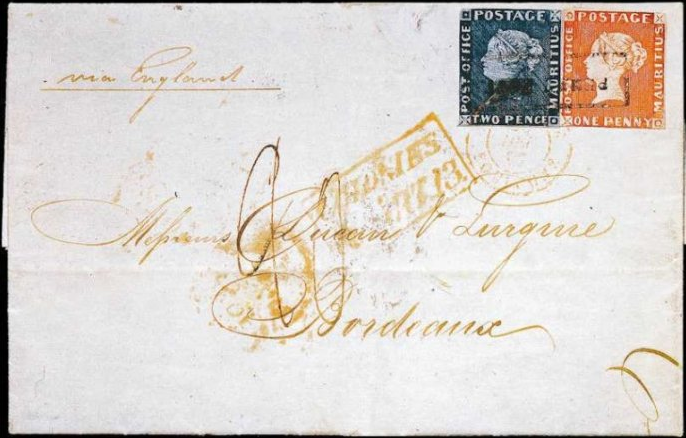 POSTAGE
POST OFFICE
MAURITIUS
TWO PENCE
POSTAGE
POST OFFICE
MAURITIUS
ONE PENNY
via England
Messieurs Ducau & Lurguie
Bordeaux